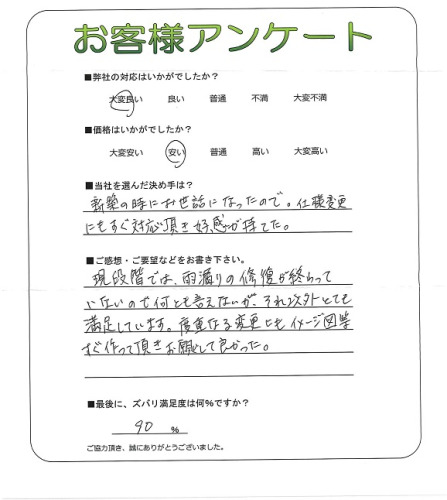 お客様アンケート
■弊社の対応はいかがでしたか?
大変良い 良い 普通 不満 大変不満
■価格はいかがでしたか?
大変安い 安い 普通 高い 大変高い
■当社を選んだ決め手は?
新築の時にお世話になったので。仕様変更
にもすぐ対応頂き好感が持てた。
■ご感想・ご要望などをお書き下さい。
現段階では、雨漏りの修復が終らって
いないので何とも言えないが、それ以外とても
満足しています。度重なる変更にもイメージ図等
すぐ作って頂きお願して良かった。
■最後に、ズバリ満足度は何%ですか?
90 %
ご協力頂き、誠にありがとうございました。